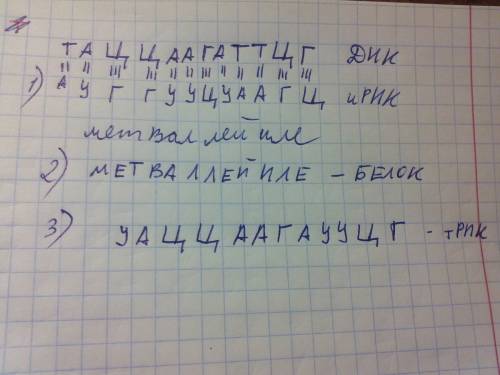 Т А Ц Ц А А Г А Т Т Ц Г ДНК
1) А У Г Г У У Ц У А А Г Ц иРНК
метваллейиле
2) МЕТВАЛЛЕЙИЛЕ – БЕЛОК
3) У А Ц Ц А А Г А У У Ц Г - тРНК